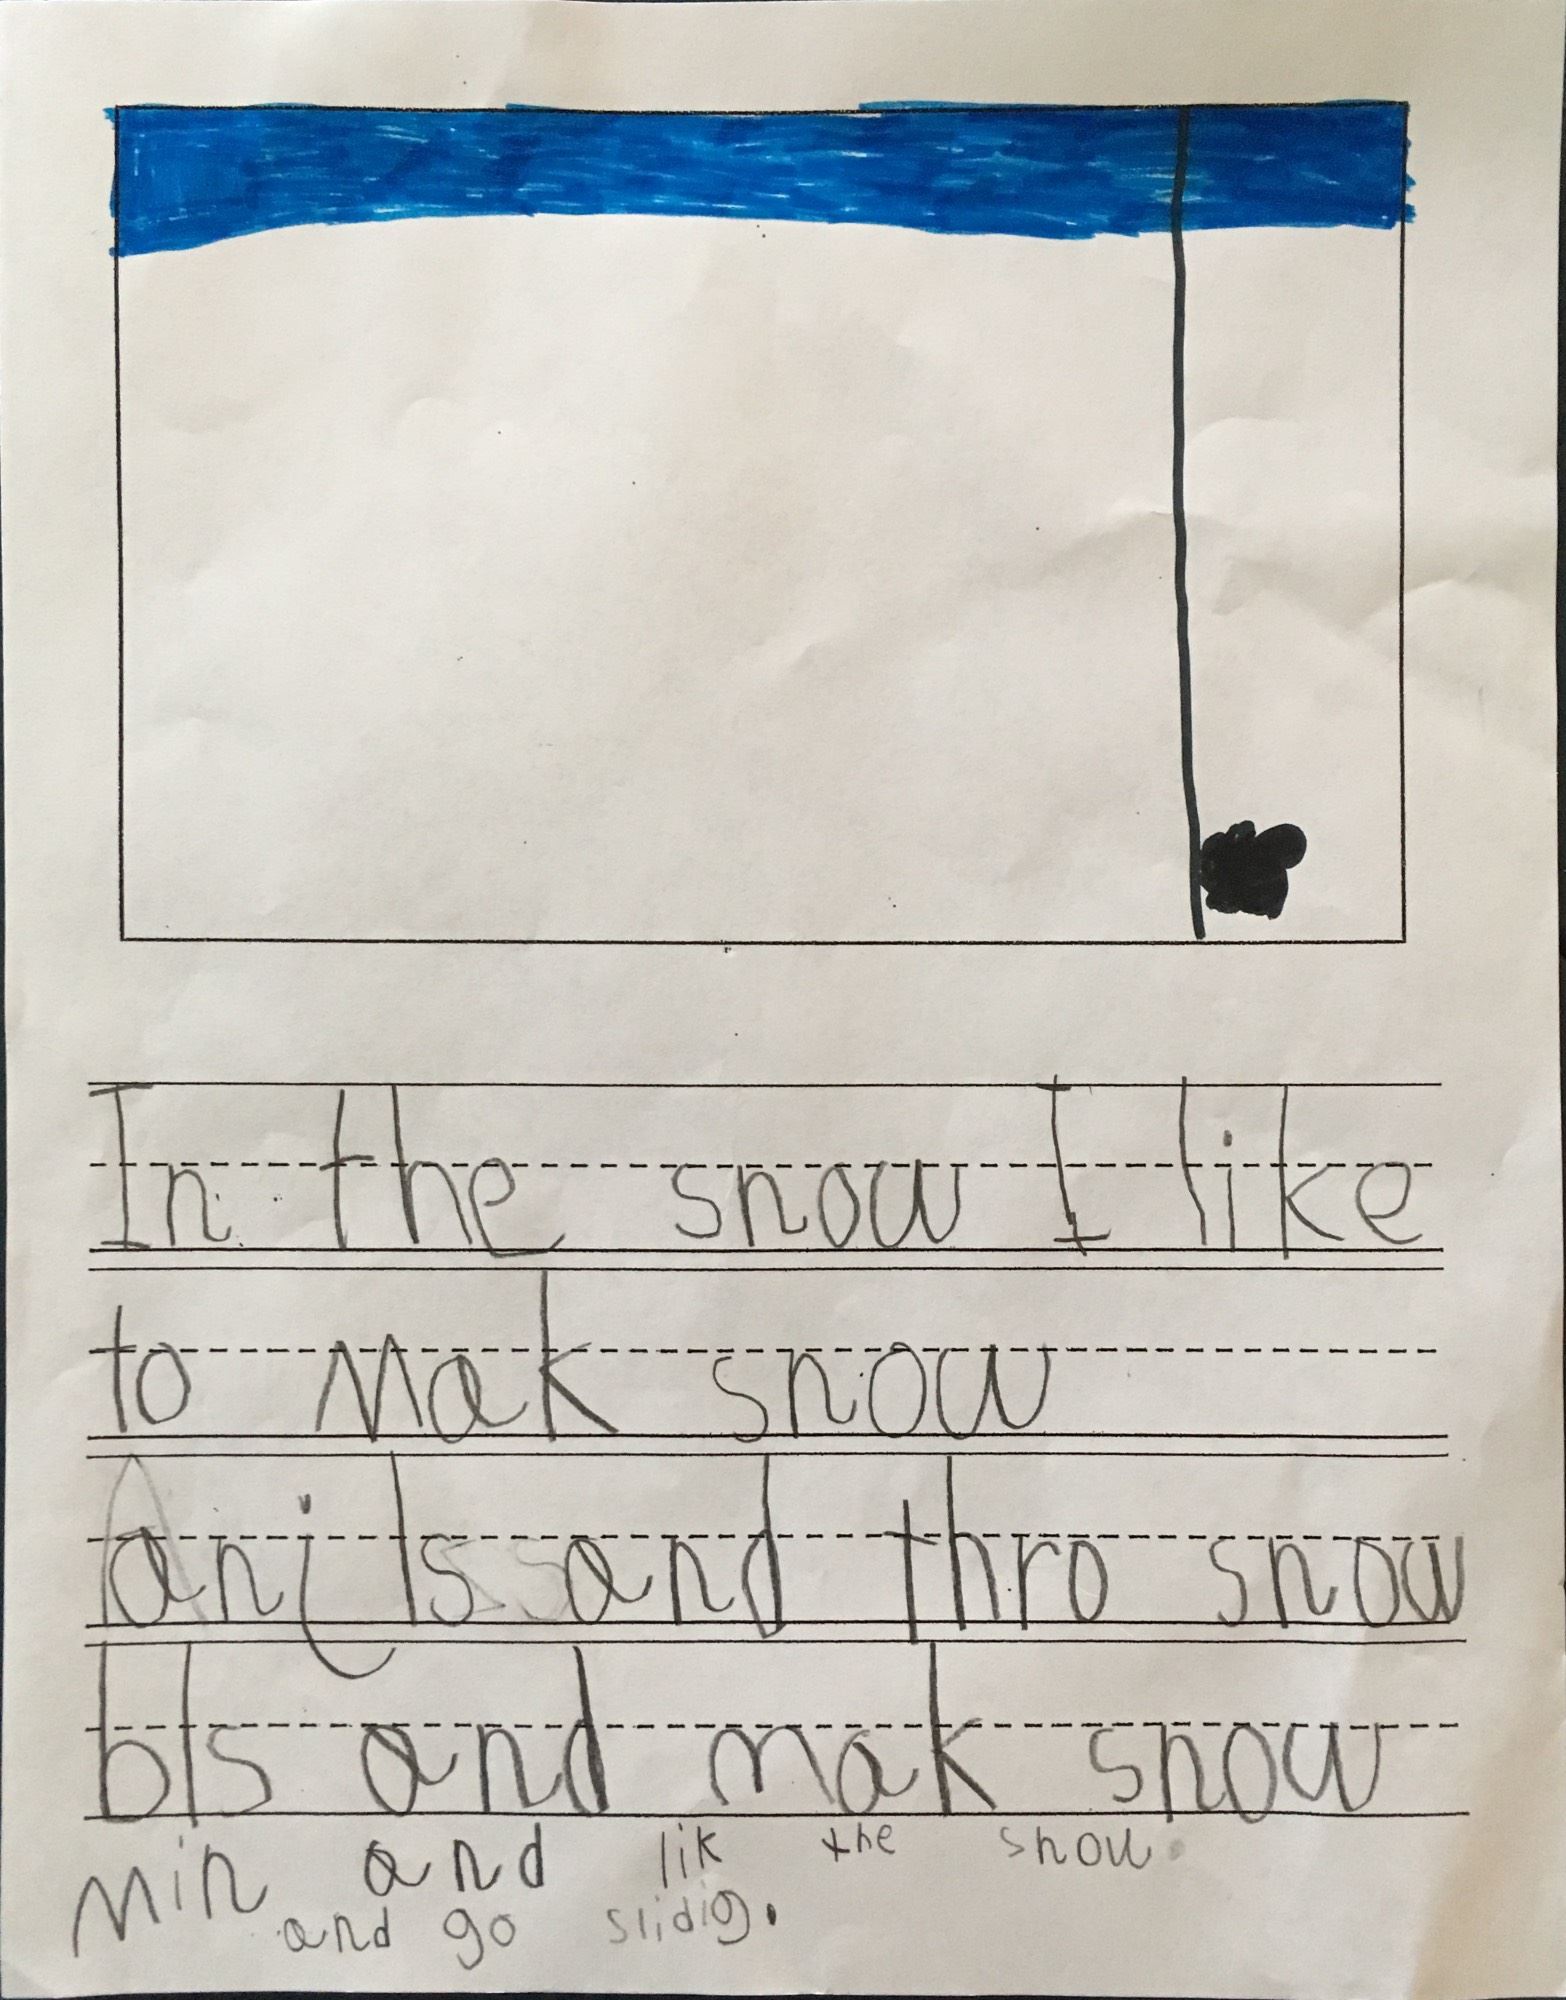 In the snow I like
to Mak snow
anjls and thro snow
bls and mak snow
Min and lik the snow
and go slidig.